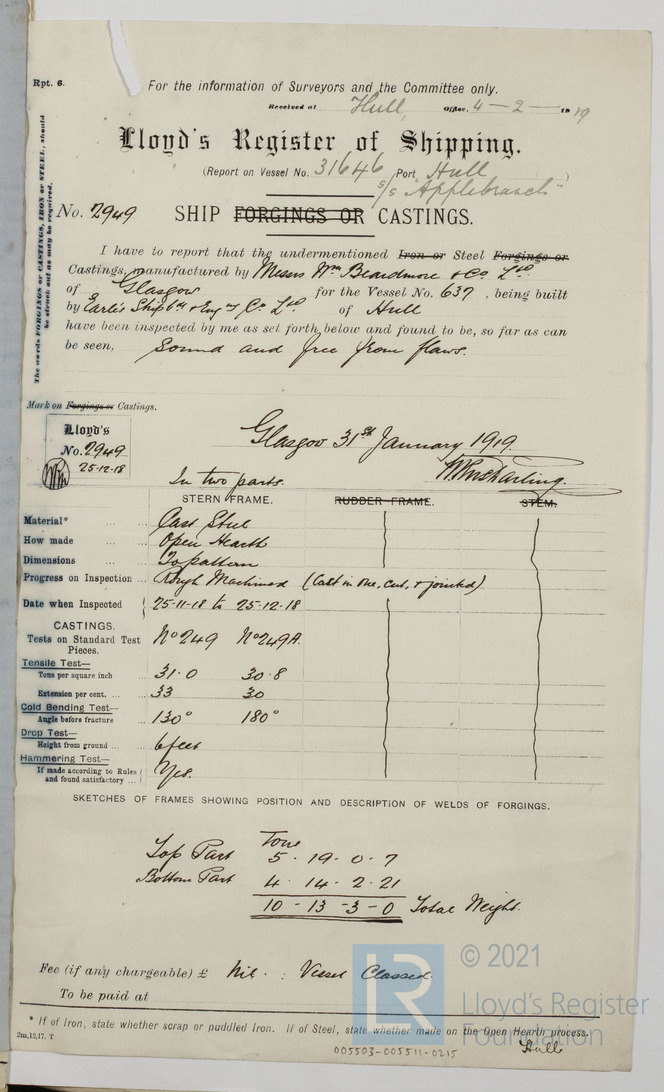 Rpt. 6.
For the information of Surveyors and the Committee only.
Received at Hull, Office, 4-2-1919
Lloyd's Register of Shipping.
(Report on Vessel No. 31646 Port Hull)
s/s "Applebranch"
No. 2949 SHIP FORGINGS OR CASTINGS.
The words FORGINGS or CASTINGS, IRON or STEEL, should
be struck out as may be required.
I have to report that the undermentioned Iron or Steel Forgings or
Castings, manufactured by Messrs Wm Beardmore & Co. Ltd.
of Glasgow for the Vessel No. 637, being built
by Earle's Shipbg & Engrg Co Ltd of Hull
have been inspected by me as set forth below and found to be, so far as can
be seen, Sound and free from flaws.
Mark on Forgings or Castings.
Lloyd's
No. 2949
25-12-18
Glasgow 31st January 1919.
In two parts.
STERN FRAME. RUDDER FRAME. STEM.
Material* Cast Steel
How made Open Hearth
Dimensions To pattern
Progress on Inspection Rough Machined (Cast in one, cut, & jointed)
Date when Inspected 25-11-18 to 25-12-18
CASTINGS.
Tests on Standard Test
Pieces. No 249 No 249A.
Tensile Test—
Tons per square inch 31.0 30.8
Extension per cent. 33 30
Cold Bending Test—
Angle before fracture 130° 180°
Drop Test—
Height from ground 6 feet
Hammering Test—
If made according to Rules
and found satisfactory Yes.
SKETCHES OF FRAMES SHOWING POSITION AND DESCRIPTION OF WELDS OF FORGINGS.
Tons
Top Part 5 - 19 - 0 - 7
Bottom Part 4 - 14 - 2 - 21
10 - 13 - 3 - 0 Total Weight.
Fee (if any chargeable) £ Nil. : Vessel Classed.
To be paid at
* If of Iron, state whether scrap or puddled Iron. If of Steel, state whether made on the Open Hearth process.
2m,12,17. T
Hull
005503-005511-0215
© 2021
Lloyd's Register
Foundation
LR